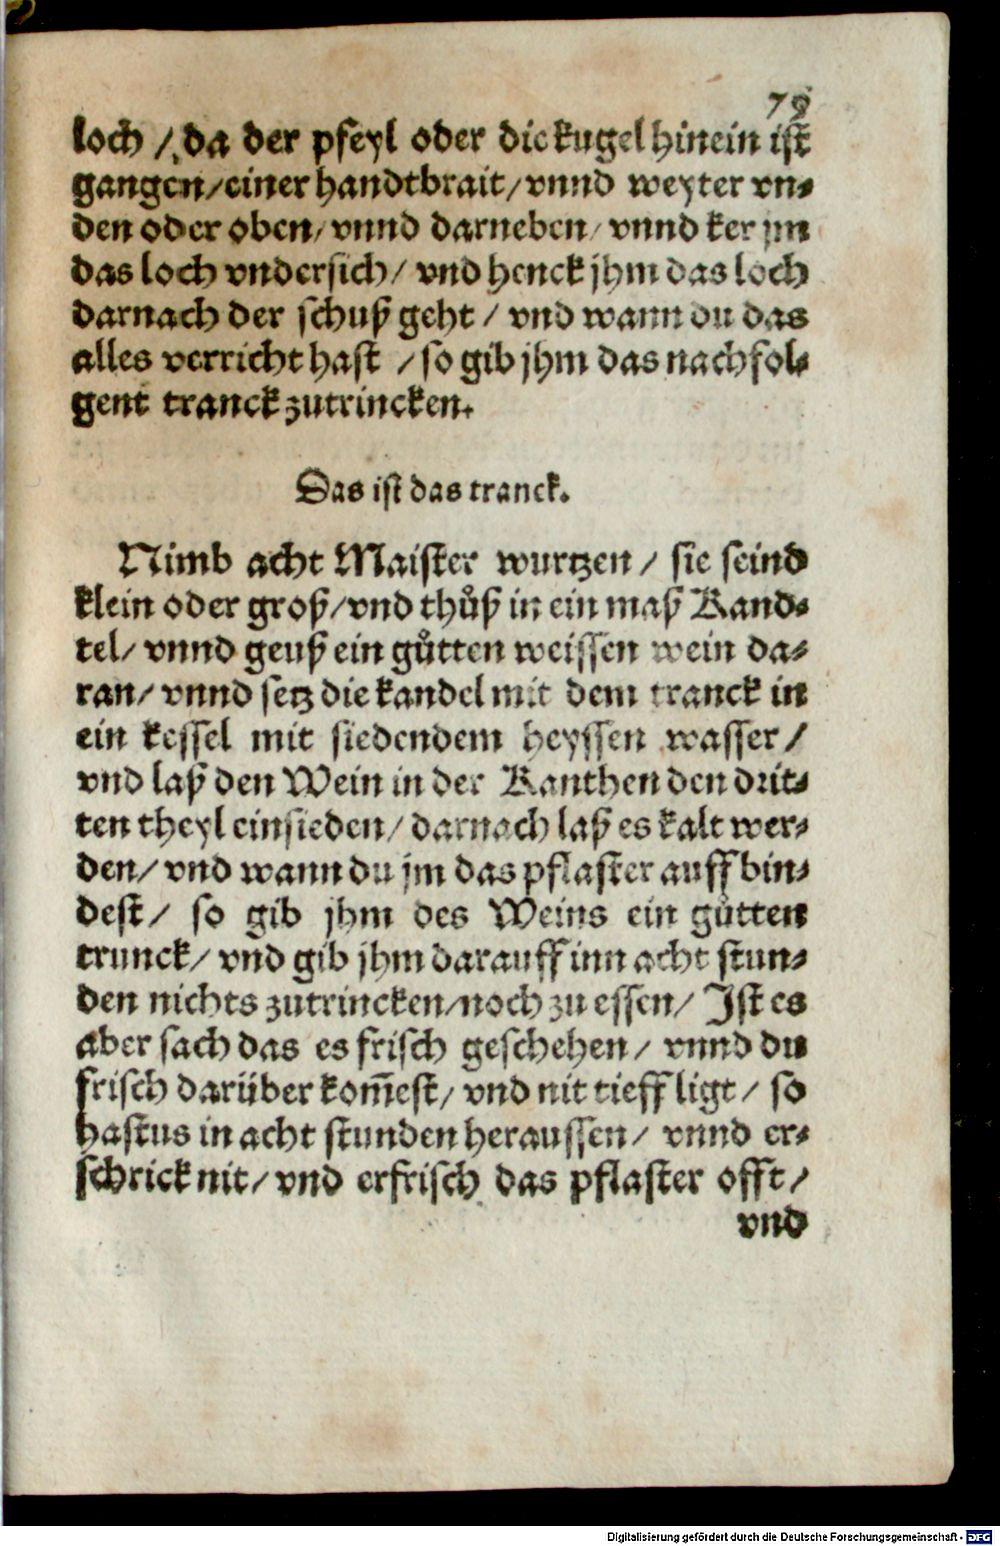 79
loch / da der pfeyl oder die kugel hinein ist
gangen / einer handtbrait / vnnd weyter vn⸗
den oder oben / vnnd darneben / vnnd ker jm
das loch vndersich / vnd henck jhm das loch
darnach der schuß geht / vnd wann du das
alles verricht hast / so gib jhm das nachfol⸗
gent tranck zutrincken.
Das ist das tranck.
Nimb acht Maister wurtzen / sie seind
klein oder groß / vnd thůß in ein maß Kand⸗
tel / vnnd geuß ein gůtten weissen wein da⸗
ran / vnnd setz die kandel mit dem tranck in
ein kessel mit siedendem heyssen wasser /
vnd laß den Wein in der Kanthen den drit⸗
ten theyl einsieden / darnach laß es kalt wer⸗
den / vnd wann du jm das pflaster auff bin⸗
dest / so gib jhm des Weins ein gůtten
trunck / vnd gib jhm darauff inn acht stun⸗
den nichts zutrincken / noch zu essen / Ist es
aber sach das es frisch geschehen / vnnd du
frisch darüber kom̃est / vnd nit tieff ligt / so
hastus in acht stunden heraussen / vnnd er⸗
schrick nit / vnd erfrisch das pflaster offt /
vnd
Digitalisierung gefördert durch die Deutsche Forschungsgemeinschaft - DFG